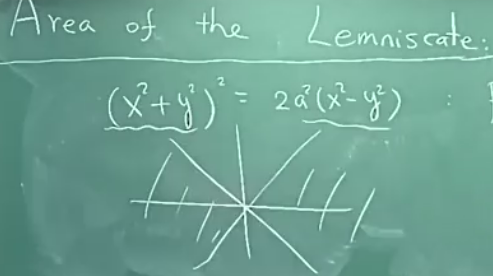 Area of the Lemniscate:
(x²+y²)² = 2a²(x²-y²) :